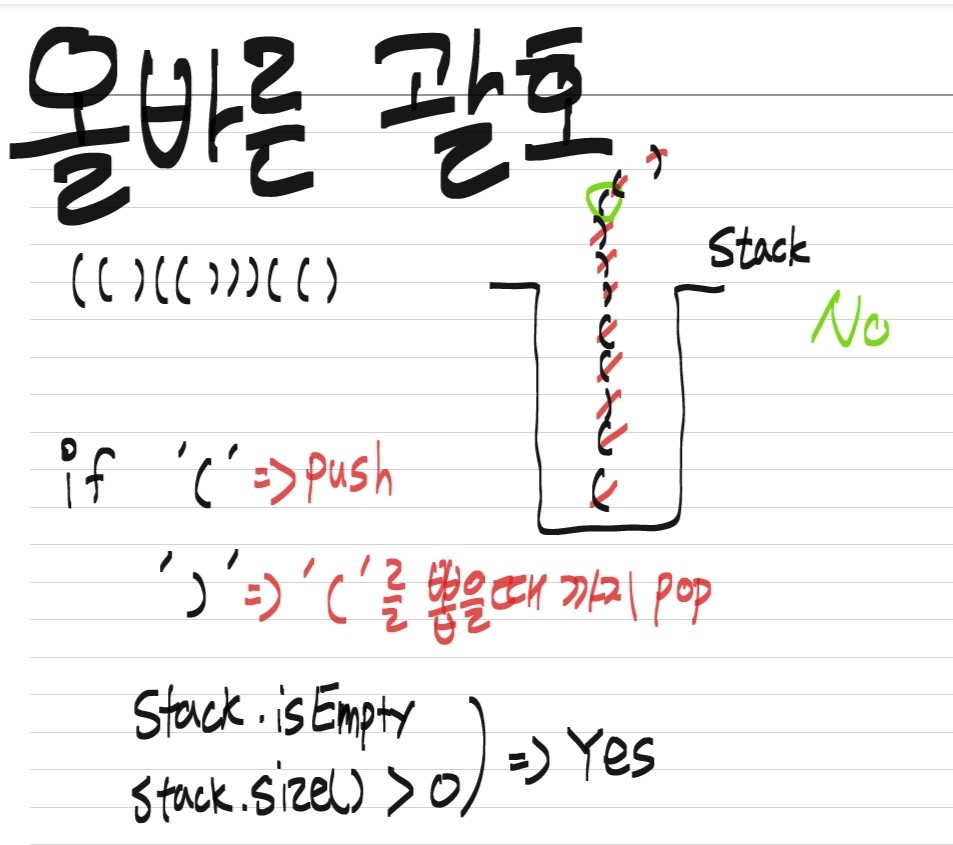 올바른 괄호
(()(()))(()
Stack
No
if '(' => push
')' => '(' 를 뽑을때 까지 pop
Stack.isEmpty
stack.size() > 0) => Yes